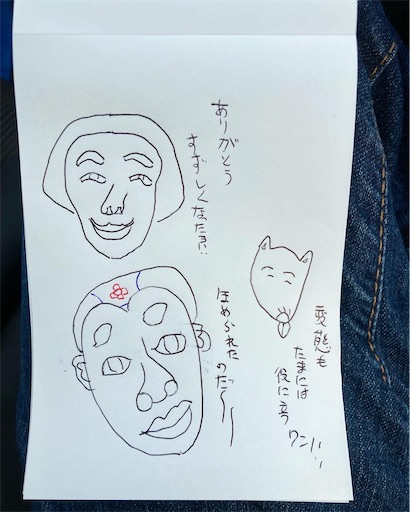 ありがとう
すずしくなったわ!!
ほめられた
のだ〜〜
変態も
たまには
役に立つ
ワン!!